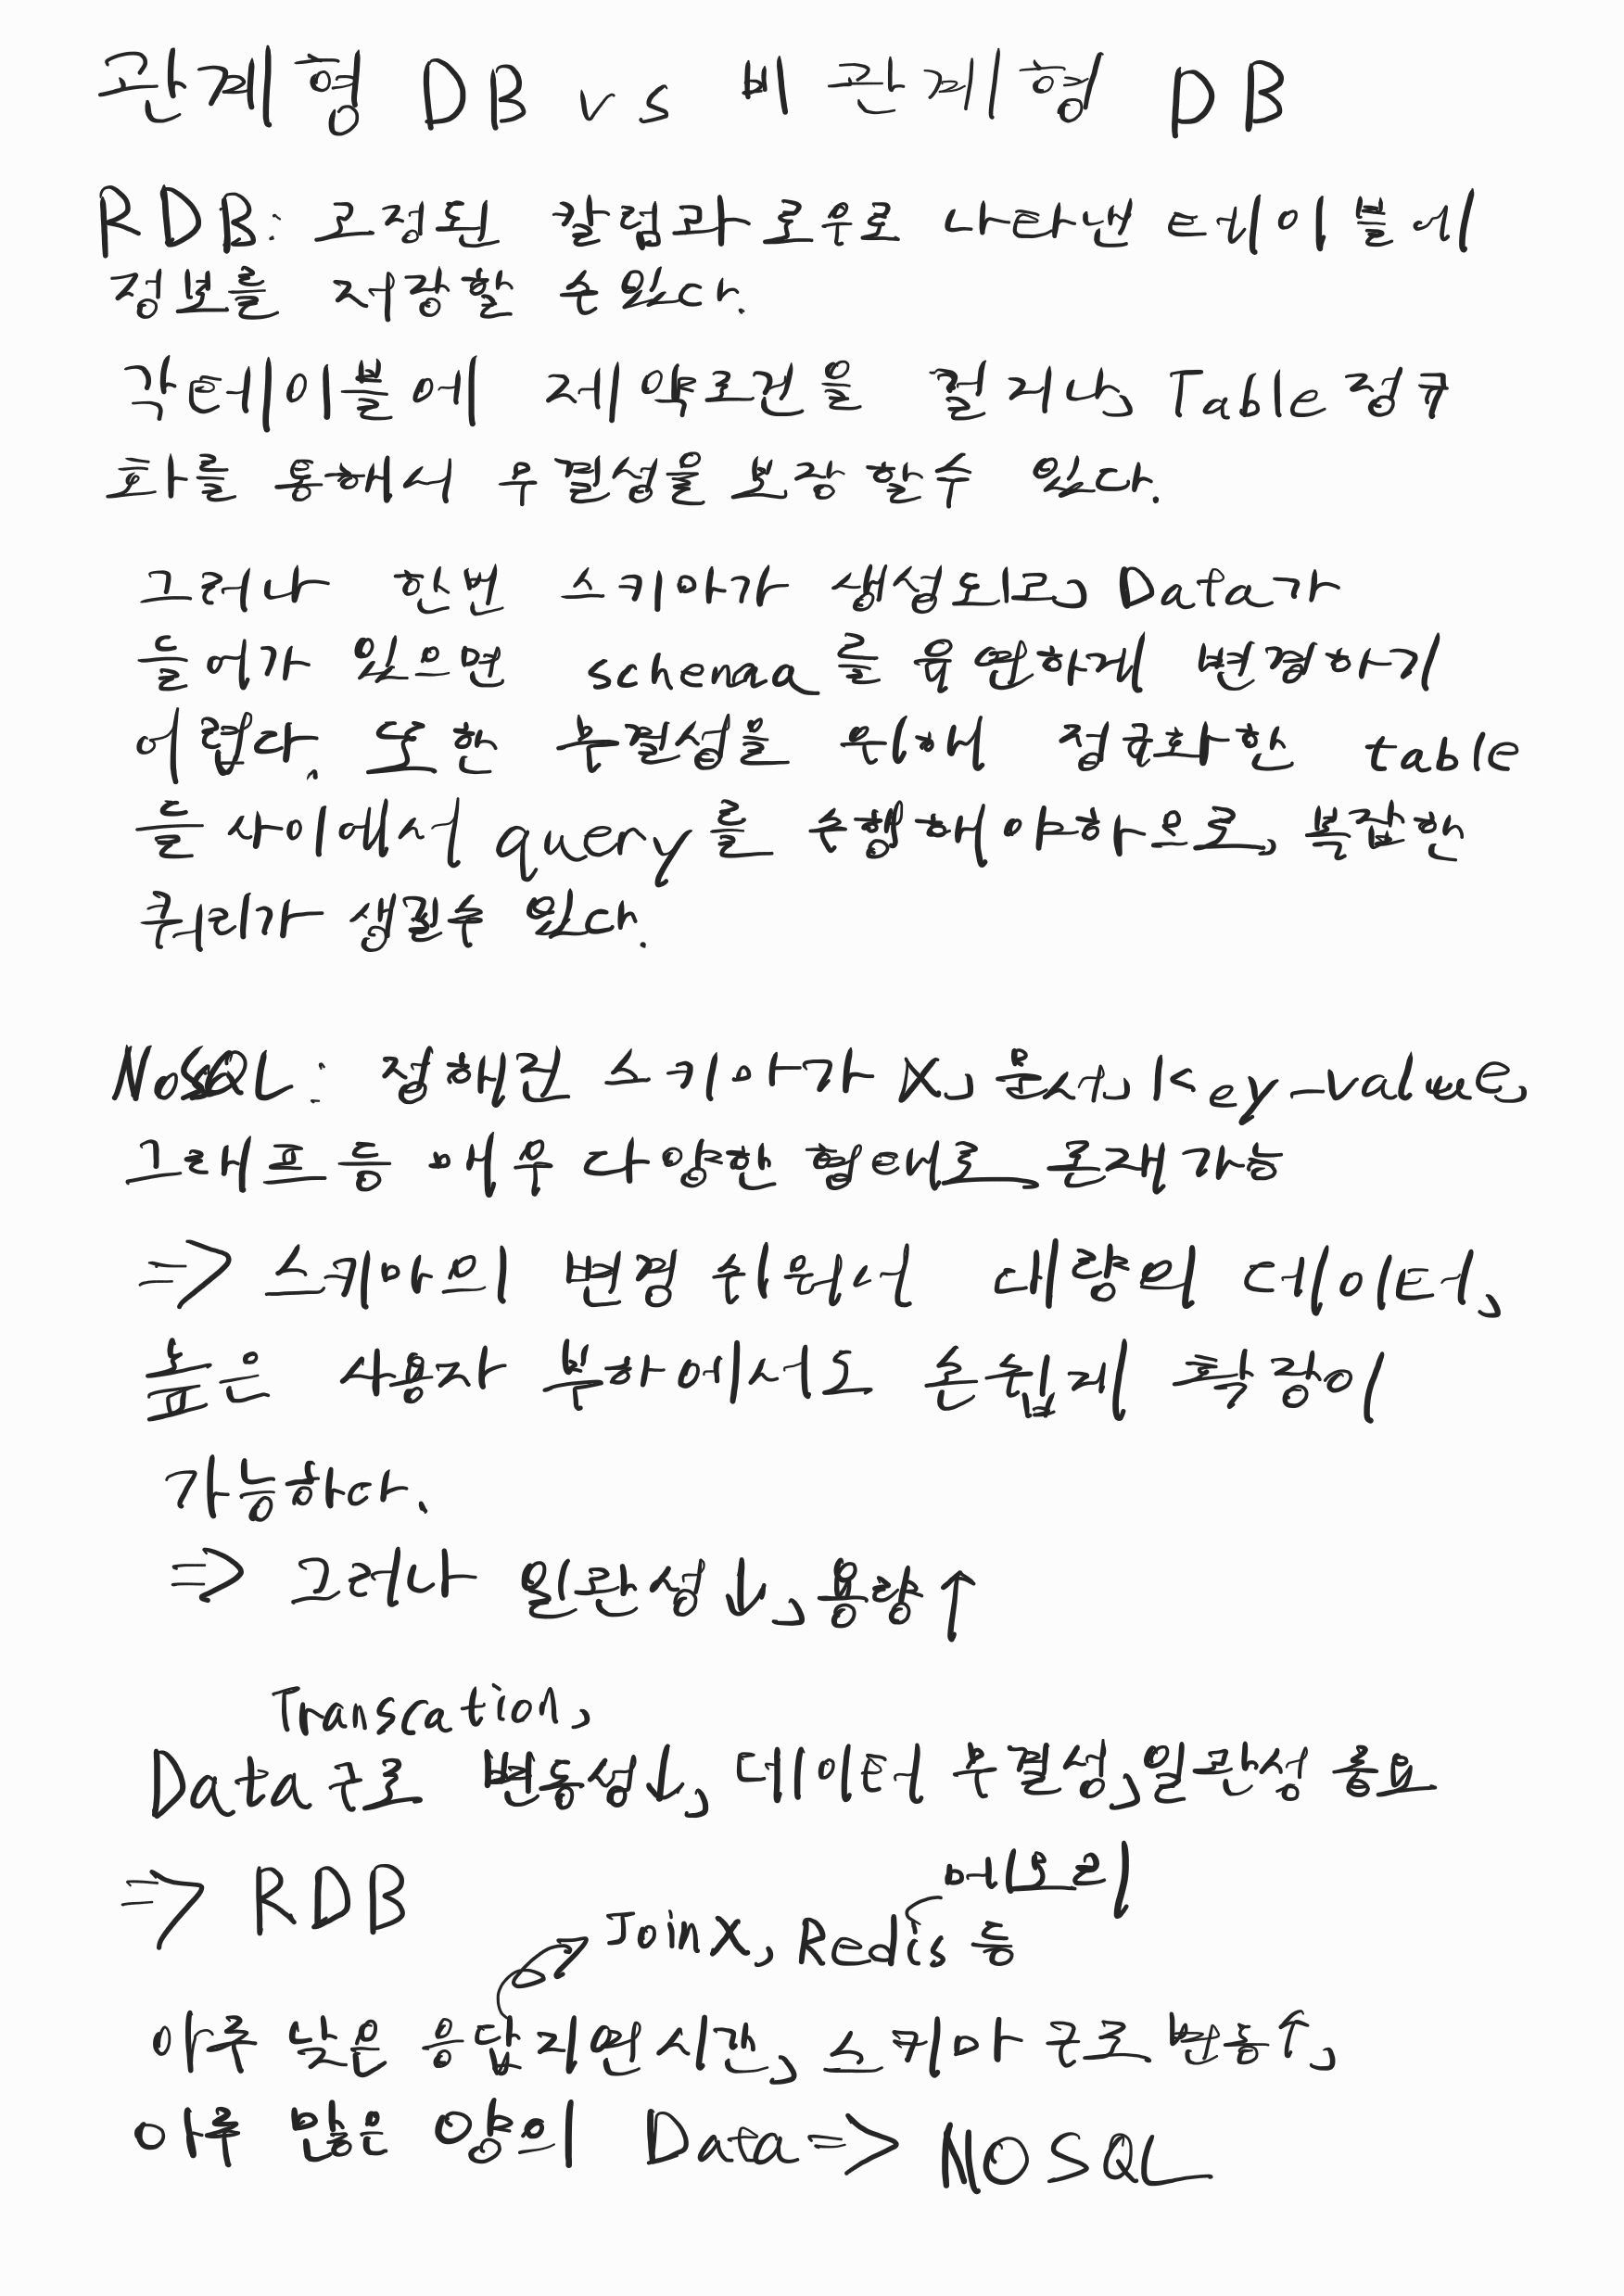 관계형 DB vs 비관계형 DB
RDB: 고정된 칼럼과로우로 나타낸 테이블에
정보를 저장할 수 있다.
각테이블에 제약조건을 걸거나, Table 정규
화를 통해서 무결성을 보장할수 있다.
그러나 한번 스키마가 생성되고, Data가
들어가 있으면 schema를 유연하게 변경하기
어렵다. 또한 무결성을 위해 정규화한 table
들 사이에서 query를 수행해야하므로, 복잡한
쿼리가 생길수 있다.
NoSQL: 정해진 스키마가 X, 문서, key-value,
그래프등 매우 다양한 형태로 존재가능
=> 스키마의 변경 쉬워서 대량의 데이터,
높은 사용자 부하에서도 손쉽게 확장이
가능하다.
=> 그러나 일관성↓, 용량↑
Transcation,
Data구조 변동성↓, 데이터 무결성, 일관성 중요
=> RDB
메모리
Join X, Redis 등
아주 낮은 응답지연시간, 스키마 구조 변동↑,
아주 많은 양의 Data => NOSQL